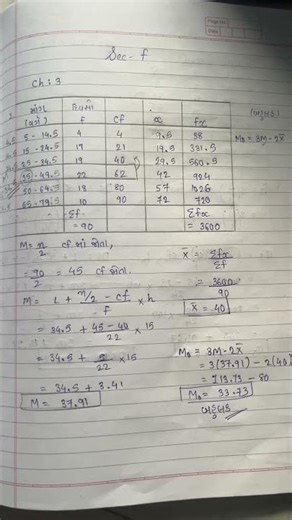 Sec - f
Ch : 3
f cf x fx
5 - 14.5 4 4 9.5 38
15 - 24.5 17 21 19.5 331.5
25 - 34.5 19 40 29.5 560.5
35 - 49.5 22 62 42 924
50 - 64.5 18 80 57 1026
65 - 79.5 10 90 72 720
Σf = 90 Σfx = 3600
M₀ = 3M - 2x̄
M = n/2 cf માં જોતા,
= 90/2 = 45 cf જોતા.
M = L + n/2 - cf / f × h
= 34.5 + 45 - 40 / 22 × 15
= 34.5 + 5/22 × 15
= 34.5 + 3.41
M = 37.91
x̄ = Σfx / Σf
= 3600 / 90
x̄ = 40
M₀ = 3M - 2x̄
= 3(37.91) - 2(40)
= 113.73 - 80
M₀ = 33.73
બહુલક